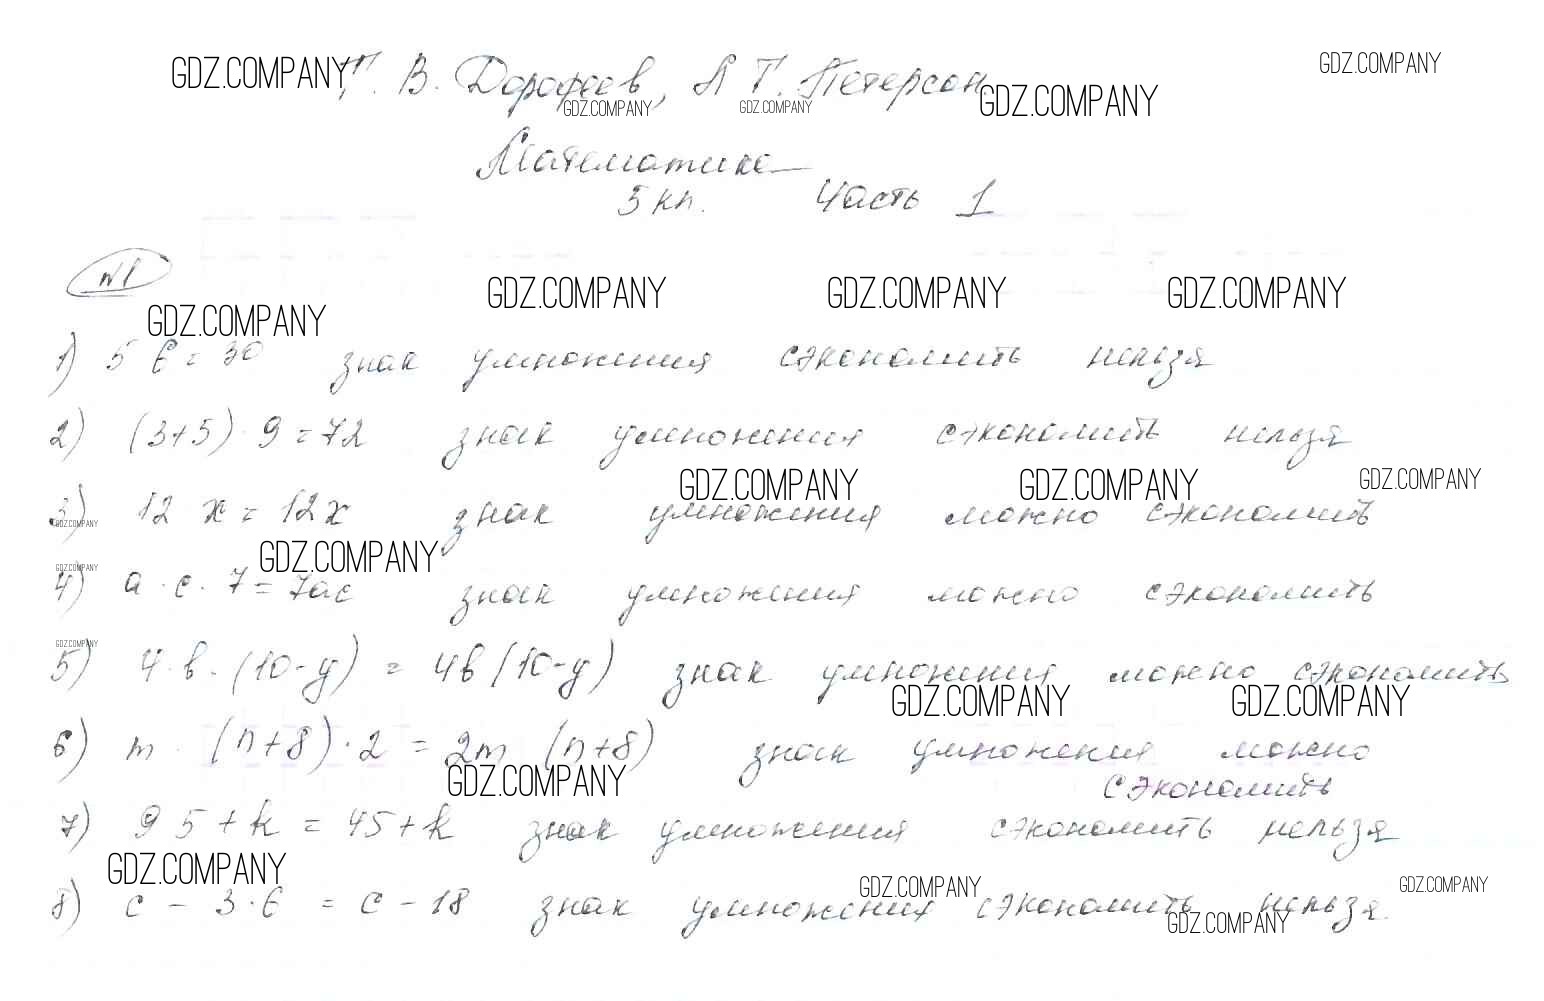 GDZ.COMPANY Г. В. Дорофеев, Л Г. Петерсон. GDZ.COMPANY
GDZ.COMPANY GDZ.COMPANY GDZ.COMPANY
Математика
5 кл. Часть 1
№1
GDZ.COMPANY GDZ.COMPANY GDZ.COMPANY
GDZ.COMPANY
1) 5 6 = 30 знак умножения сэкономить нельзя
2) (3+5) · 9 = 72 знак умножения сэкономить нельзя
GDZ.COMPANY GDZ.COMPANY GDZ.COMPANY
3) 12 x = 12x знак умножения можно сэкономить
GDZ.COMPANY
GDZ.COMPANY
GDZ.COMPANY
4) a · c · 7 = 7ac знак умножения можно сэкономить
GDZ.COMPANY
5) 4 · b · (10 - y) = 4b (10 - y) знак умножения можно сэкономить
GDZ.COMPANY GDZ.COMPANY
6) m · (n+8) · 2 = 2m (n+8) знак умножения можно
сэкономить
GDZ.COMPANY
7) 9 5 + k = 45 + k знак умножения сэкономить нельзя
GDZ.COMPANY GDZ.COMPANY GDZ.COMPANY
8) c - 3 · 6 = c - 18 знак умножения сэкономить нельзя.
GDZ.COMPANY